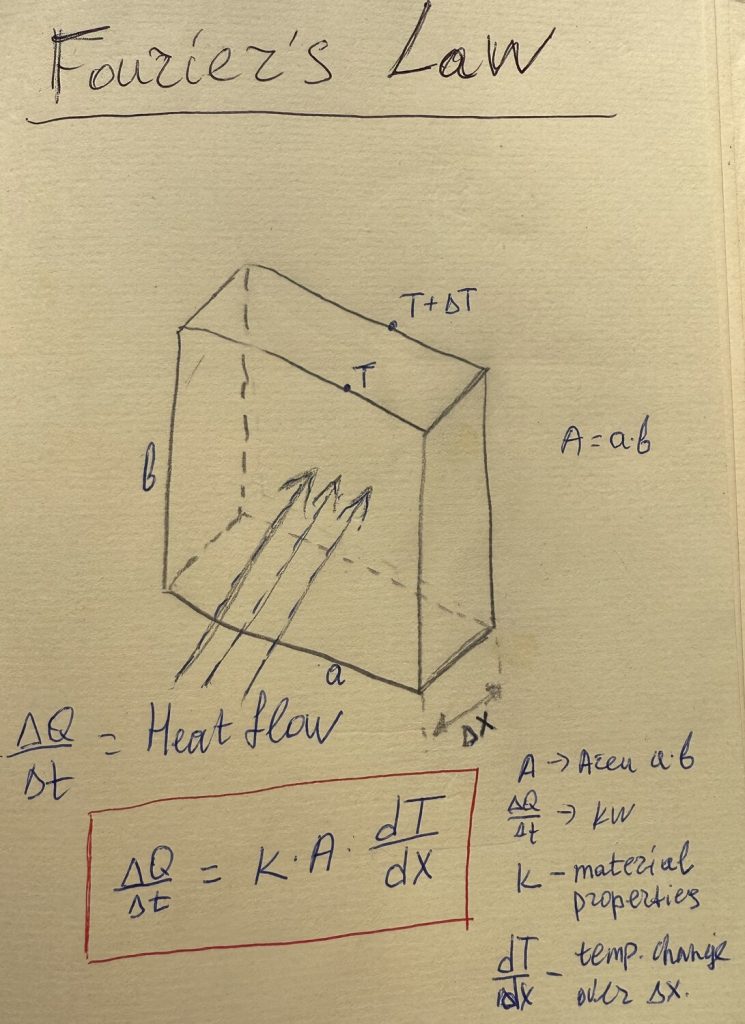 Fourier's Law
T+ΔT
T
A=a·b
b
a
Δx
ΔQ/Δt = Heat flow
ΔQ/Δt = K·A·dT/dx
A → Area a·b
ΔQ/Δt → kW
K – material
properties
dT/dx – temp. change
over Δx.